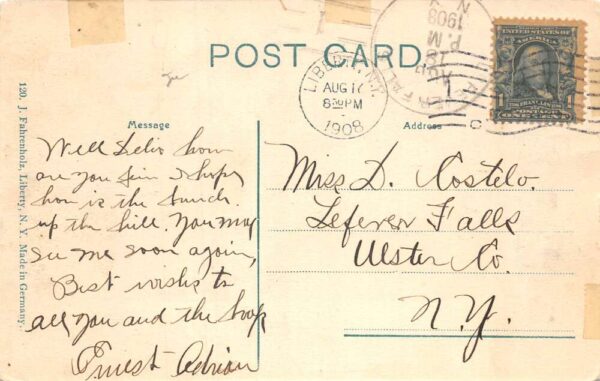 POST CARD.
LIBERTY, N.Y.
AUG 17
8 30 PM
1908
1908
P. M
UNITED STATES OF AMERICA
FRANKLIN
ONE CENT
120. J. Fahrenholz, Liberty, N. Y. Made in Germany.
Message
Well Delia how
are you fine I hope
how is the bunch
up the hill. You may
see me soon again,
Best wishes to
all you and the
Ernest Adrian
Address
Miss D. Costelo.
Lefever Falls
Ulster Co.
N.Y.